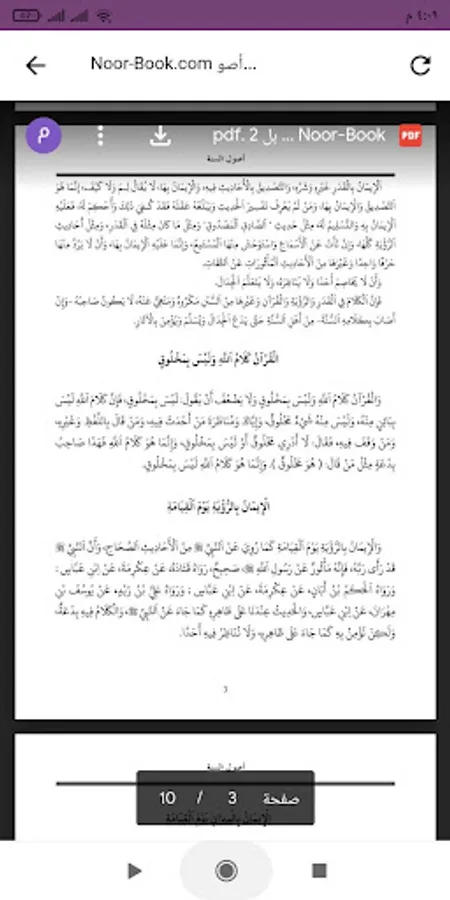 ٤:٠٩ م
Noor-Book.com أصو...
Noor-Book ... بل 2 .pdf
PDF
م
أصول السنة
الْإِيمَانُ بِالْقَدَرِ خَيْرِهِ وَشَرِّهِ، وَالتَّصْدِيقُ بِالْأَحَادِيثِ فِيهِ، وَالْإِيمَانُ بِهَا، لَا يُقَالُ لِمَ وَلَا كَيْفَ، إِنَّمَا هُوَ
التَّصْدِيقُ وَالْإِيمَانُ بِهَا، وَمَنْ لَمْ يَعْرِفْ تَفْسِيرَ الْحَدِيثِ وَيَبْلُغْهُ عَقْلُهُ فَقَدْ كُفِيَ ذَلِكَ وَأُحْكِمَ لَهُ، فَعَلَيْهِ
الْإِيمَانُ بِهِ وَالتَّسْلِيمُ لَهُ، مِثْلُ حَدِيثِ - الصَّادِقِ الْمَصْدُوقِ- وَمِثْلُ مَا كَانَ مِثْلَهُ فِي الْقَدَرِ، وَمِثْلُ أَحَادِيثِ
الرُّؤْيَةِ كُلِّهَا، وَإِنْ نَأَتْ عَنِ الْأَسْمَاعِ وَاسْتَوْحَشَ مِنْهَا الْمُسْتَمِعُ، وَإِنَّمَا عَلَيْهِ الْإِيمَانُ بِهَا، وَأَنْ لَا يَرُدَّ مِنْهَا
حَرْفًا وَاحِدًا وَغَيْرِهَا مِنَ الْأَحَادِيثِ الْمَأْثُورَاتِ عَنِ الثِّقَاتِ.
وَأَنْ لَا يُخَاصِمَ أَحَدًا وَلَا يُنَاظِرَهُ، وَلَا يَتَعَلَّمَ الْجِدَالَ.
فَإِنَّ الْكَلَامَ فِي الْقَدَرِ وَالرُّؤْيَةِ وَالْقُرْآنِ وَغَيْرِهَا مِنَ السُّنَنِ مَكْرُوهٌ وَمَنْهِيٌّ عَنْهُ، لَا يَكُونُ صَاحِبُهُ -وَإِنْ
أَصَابَ بِكَلَامِهِ السُّنَّةَ- مِنْ أَهْلِ السُّنَّةِ حَتَّى يَدَعَ الْجِدَالَ وَيُسَلِّمَ وَيُؤْمِنَ بِالْآثَارِ.
الْقُرْآنُ كَلَامُ اللَّهِ وَلَيْسَ بِمَخْلُوقٍ
وَالْقُرْآنُ كَلَامُ اللَّهِ وَلَيْسَ بِمَخْلُوقٍ وَلَا يَضْعُفُ أَنْ يَقُولَ: لَيْسَ بِمَخْلُوقٍ، فَإِنَّ كَلَامَ اللَّهِ لَيْسَ
بِبَائِنٍ مِنْهُ، وَلَيْسَ مِنْهُ شَيْءٌ مَخْلُوقٌ، وَإِيَّاكَ وَمُنَاظَرَةَ مَنْ أَحْدَثَ فِيهِ، وَمَنْ قَالَ بِاللَّفْظِ وَغَيْرِهِ،
وَمَنْ وَقَفَ فِيهِ، فَقَالَ: لَا أَدْرِي مَخْلُوقٌ أَوْ لَيْسَ بِمَخْلُوقٍ، وَإِنَّمَا هُوَ كَلَامُ اللَّهِ فَهَذَا صَاحِبُ
بِدْعَةٍ مِثْلُ مَنْ قَالَ: ( هُوَ مَخْلُوقٌ ). وَإِنَّمَا هُوَ كَلَامُ اللَّهِ لَيْسَ بِمَخْلُوقٍ.
الْإِيمَانُ بِالرُّؤْيَةِ يَوْمَ الْقِيَامَةِ
وَالْإِيمَانُ بِالرُّؤْيَةِ يَوْمَ الْقِيَامَةِ كَمَا رُوِيَ عَنِ النَّبِيِّ ﷺ مِنَ الْأَحَادِيثِ الصِّحَاحِ، وَأَنَّ النَّبِيَّ ﷺ
قَدْ رَأَى رَبَّهُ، فَإِنَّهُ مَأْثُورٌ عَنْ رَسُولِ اللَّهِ ﷺ، صَحِيحٌ، رَوَاهُ قَتَادَةُ، عَنْ عِكْرِمَةَ، عَنِ ابْنِ عَبَّاسٍ؛
وَرَوَاهُ الْحَكَمُ بْنُ أَبَانَ، عَنْ عِكْرِمَةَ، عَنِ ابْنِ عَبَّاسٍ ; وَرَوَاهُ عَلِيُّ بْنُ زَيْدٍ، عَنْ يُوسُفَ بْنِ
مِهْرَانَ، عَنِ ابْنِ عَبَّاسٍ، وَالْحَدِيثُ عِنْدَنَا عَلَى ظَاهِرِهِ كَمَا جَاءَ عَنِ النَّبِيِّ ﷺ، وَالْكَلَامُ فِيهِ بِدْعَةٌ،
وَلَكِنْ نُؤْمِنُ بِهِ كَمَا جَاءَ عَلَى ظَاهِرِهِ، وَلَا نُنَاظِرُ فِيهِ أَحَدًا.
أصول السنة
صفحة 3 / 10
الْإِيمَانُ بِالْمِيزَانِ يَوْمَ الْقِيَامَةِ